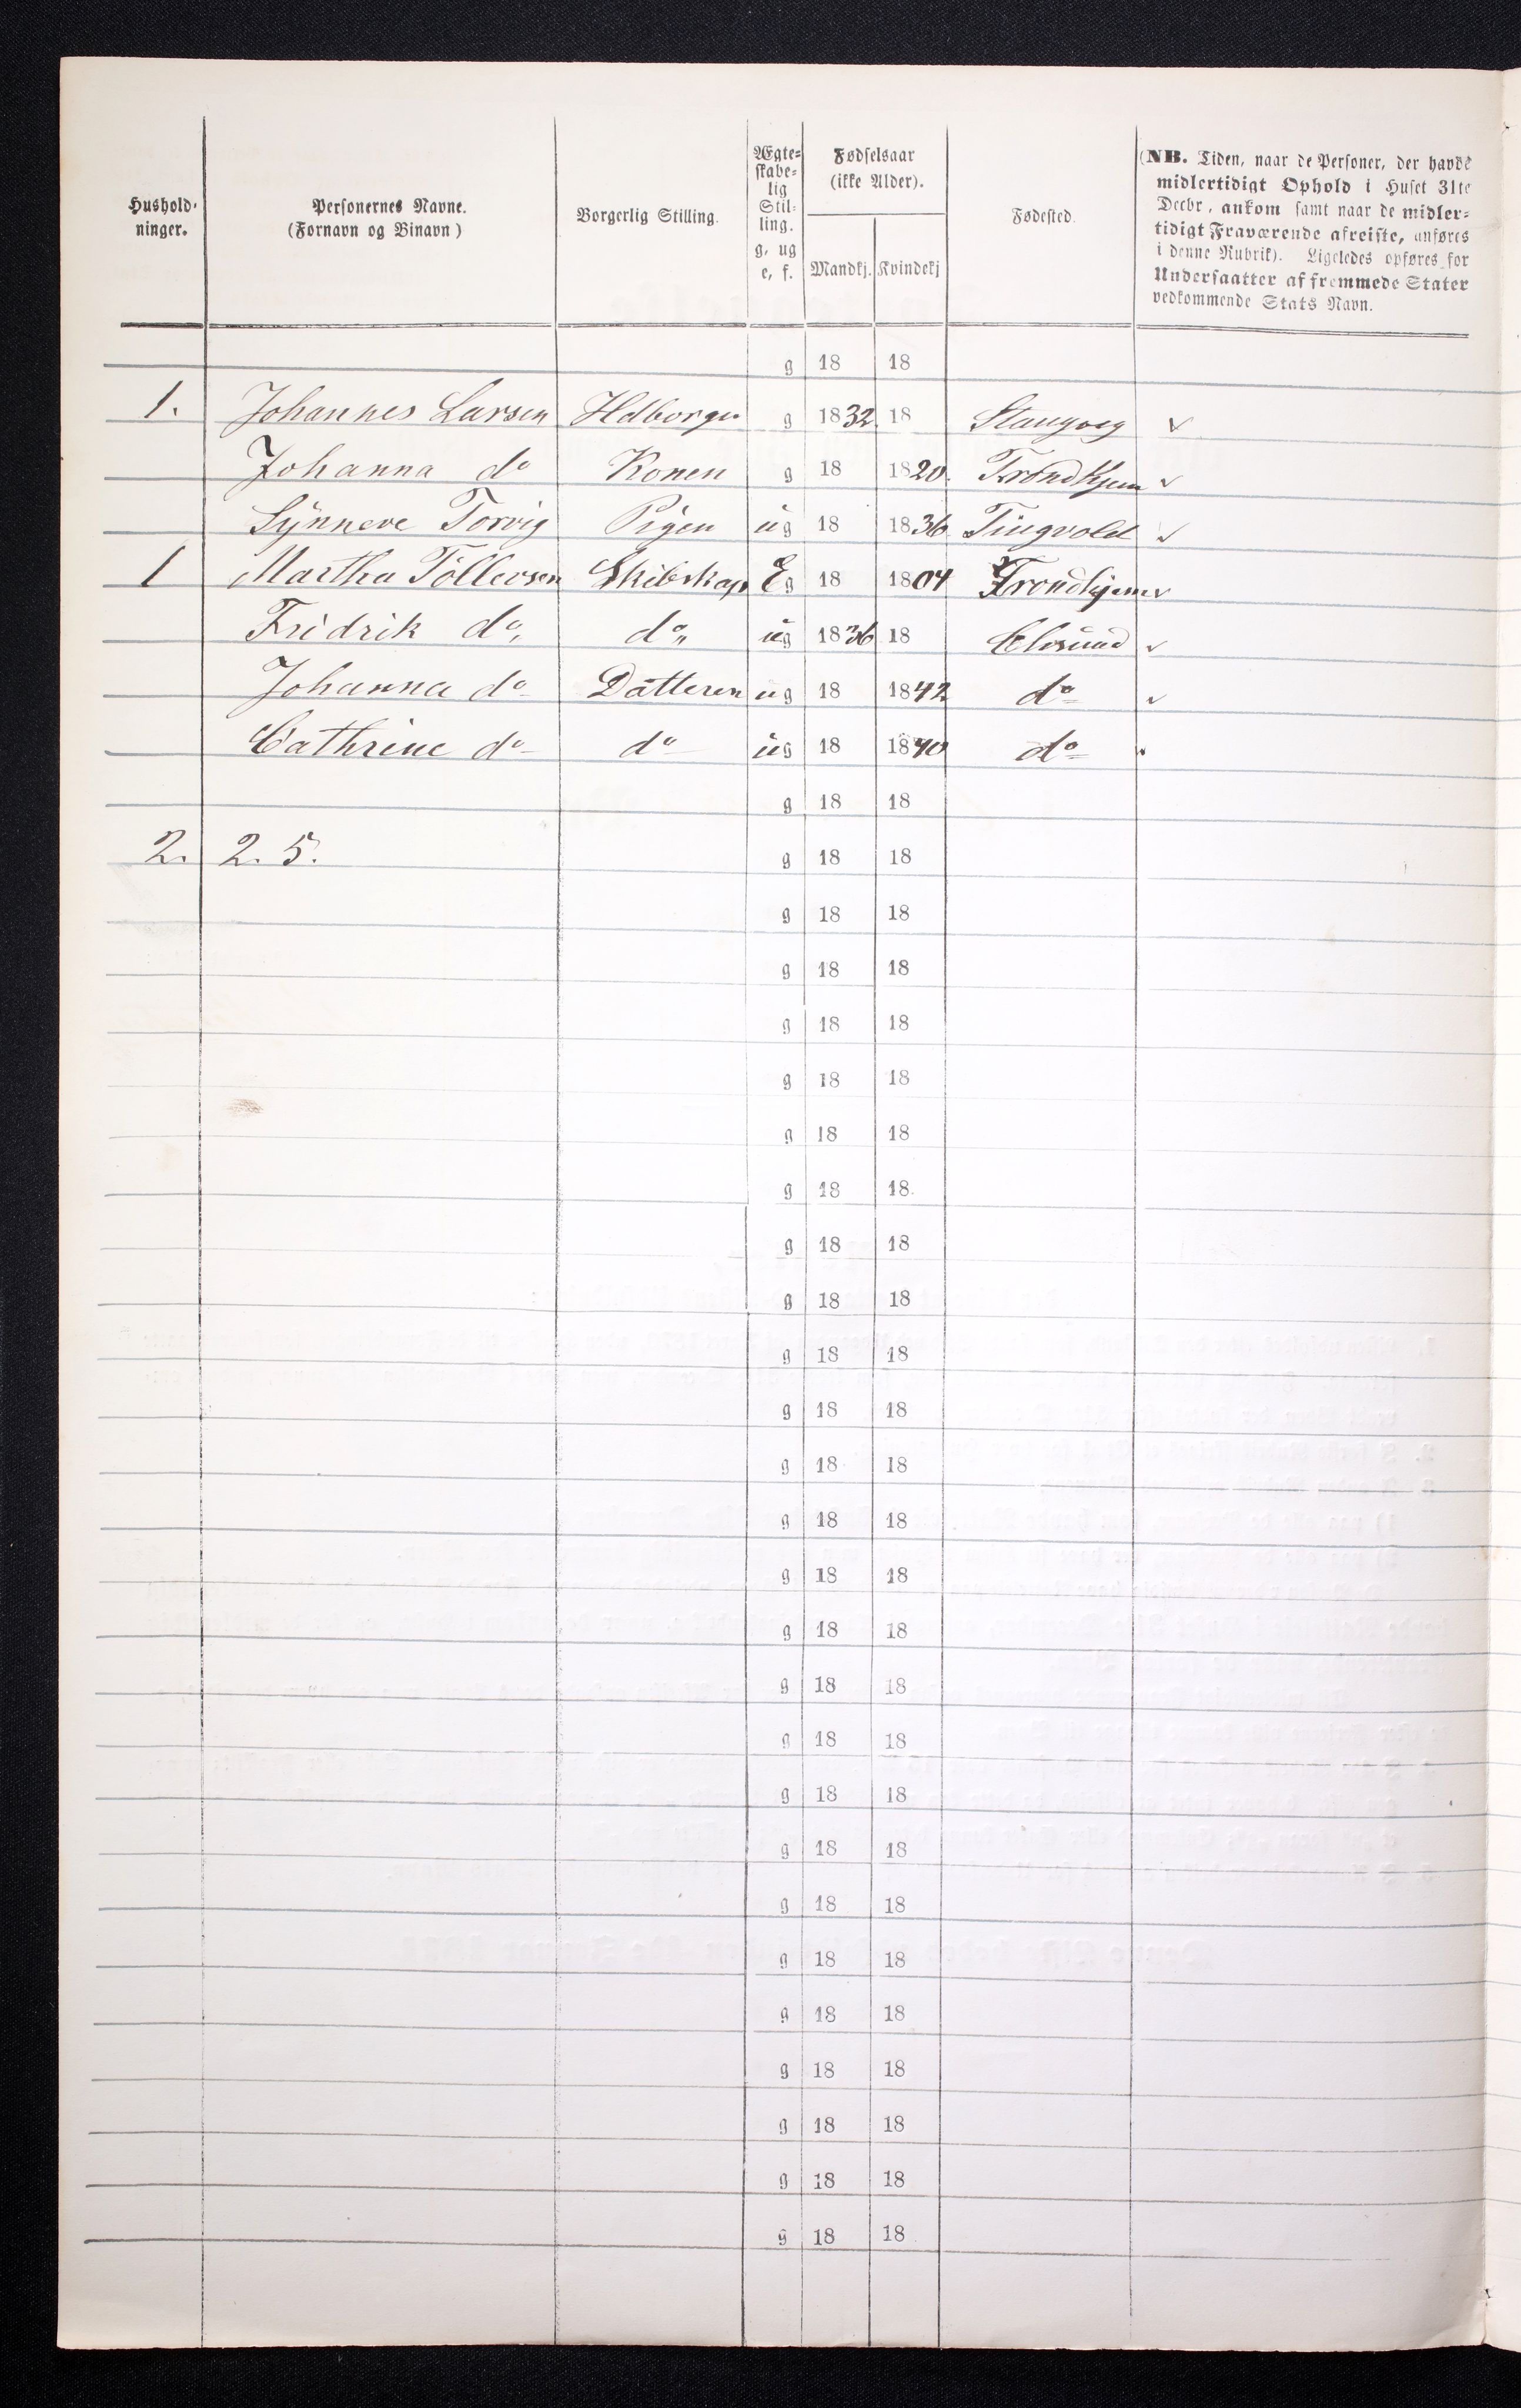 Hushold-
ninger.
Personernes Navne.
(Fornavn og Binavn)
Borgerlig Stilling.
Ægte-
skabe-
lig
Stil-
ling.
g, ug
e, f.
Fødselsaar
(ikke Alder).
Mandkj. Kvindekj
Fødested.
(NB. Tiden, naar de Personer, der havde
midlertidigt Ophold i Huset 31te
Decbr, ankom samt naar de midler-
tidigt Fraværende afreiste, anføres
i denne Rubrik). Ligeledes opføres for
Undersaatter af fremmede Stater
vedkommende Stats Navn.
g 18 18
1. Johannes Larsen Hdborger g 1832 18 Stangvig
Johanna do Konen g 18 1820. Trondhjem
Synneve Torvig Pigen ug 18 1836 Tingvold
1 Martha Tøllevsen Skibskap E g 18 1804 Trondhjem
Fridrik do, do, ug 1836 18
Johanna do Datteren ug 18 1842 do
Cathrine do do ug 18 1840 do
g 18 18
2. 2. 5. g 18 18
g 18 18
g 18 18
g 18 18
g 18 18
g 18 18
g 18 18.
g 18 18
g 18 18
g 18 18
g 18 18
g 18 18
g 18 18
g 18 18
g 18 18
g 18 18
g 18 18
g 18 18
g 18 18
g 18 18
g 18 18
g 18 18
g 18 18
g 18 18
g 18 18
g 18 18